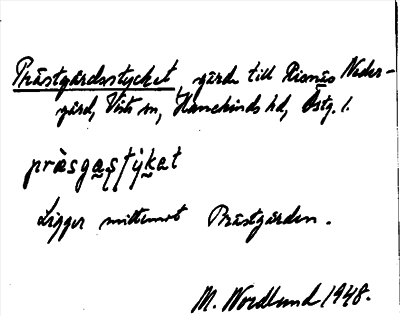 Prästgårdsstycket, gärde till Risnäs Neder-
gård, Vists sn, Hanekinds hd, Östg. l.
pràsgas̩tỳkat
Ligger mittemot Prästgården.
M. Nordlund 1948.